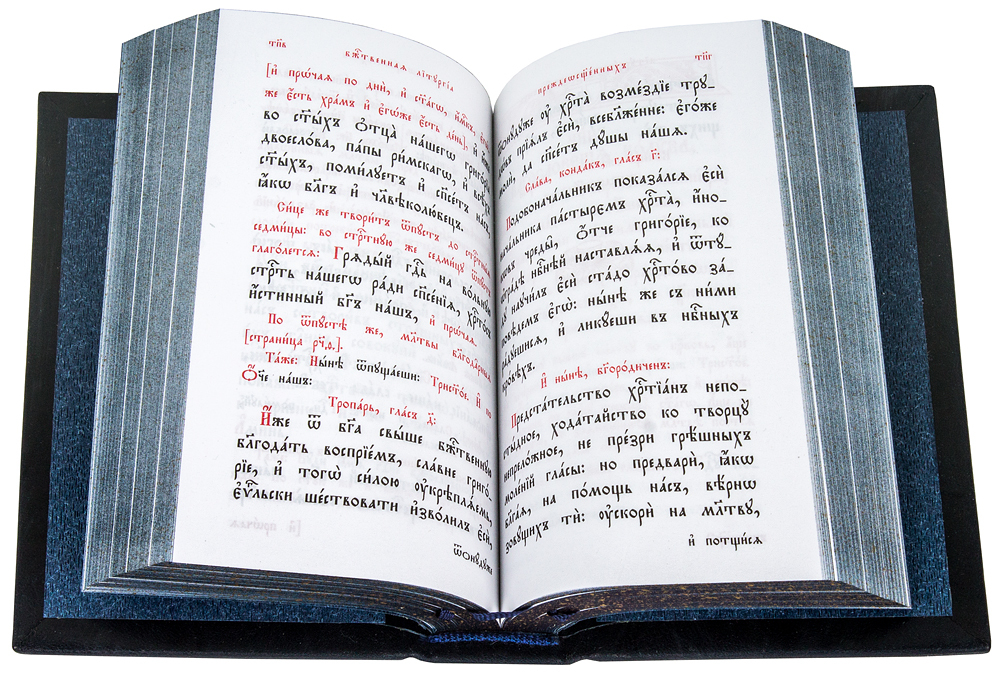 тп҃в
бж҃твенная літꙋргі́а
[и҆ прѡ́чаѧ по дни̑, и҆ ст҃а́гѡ, и҆́мⷬ҇къ,
же є҆́сть хра́мъ и҆ є҆гѡ́же є҆́сть де́нь], и҆
во ст҃ы́хъ ѻ҆тца̀ на́шегѡ григо́рїа
двоесло́ва, па́пы ри́мскагѡ, и҆ всѣ́хъ
ст҃ы́хъ, поми́лꙋетъ и҆ сп҃се́тъ на́съ,
ꙗ҆́кѡ бл҃гъ и҆ чл҃вѣколю́бецъ.
Си́це же твори́тъ ѿпꙋ́стъ до стрⷭ҇тны́ѧ
седми́цы: во стрⷭ҇тнꙋ́ю же седми́цꙋ ѿпꙋ́стъ
глаго́летсѧ: Грѧды́й гдⷭ҇ь на во́льнꙋю
стрⷭ҇ть на́шегѡ ра́ди сп҃се́нїѧ, хрⷭ҇то́съ
и҆́стинный бг҃ъ на́шъ, и҆ прѡ́чаѧ.
По ѿпꙋ́стѣ же, мл҃твы бл҃года́рныѧ
[страни́ца рч҃ѳ.].
Та́же: Ны́нѣ ѿпꙋща́еши: Трист҃о́е. И҆ по
Ѻ҆́ч҃е на́шъ:
Тропа́рь, гла́съ д҃:
И҆́же ѿ бг҃а свы́ше бжⷭ҇твеннꙋю
бл҃года́ть воспрїе́мъ, сла́вне григо́-
рїе, и҆ тогѡ̀ си́лою ᲂу҆крѣплѧ́емь,
є҆ѵⷢ҇льски ше́ствовати и҆зво́лилъ є҆сѝ,
ѿѻнꙋ́дꙋже
[и҆ прѡ́чаѧ
преждеѡсщ҃е́нныхъ
тп҃г
ѿѻнꙋ́дꙋже ᲂу҆ хрⷭ҇та̀ возме́здїе трꙋ-
дѡ́въ прїѧ́лъ є҆сѝ, всебл҃же́нне: є҆го́же
молѝ, да сп҃се́тъ дꙋ́шы на́шѧ.
Сла́ва, конда́къ, гла́съ г҃:
Подобонача́льникъ показа́лсѧ є҆сѝ
нача́льника па́стыремъ хрⷭ҇та̀, и҆́но-
кѡвъ чреды̑, ѻ҆́тче григо́рїе, ко
ѡ҆гра́дѣ нбⷭ҇нѣй наставлѧ́ѧ, и҆ ѿтꙋ́-
дꙋ наꙋчи́лъ є҆сѝ ста́до хрⷭ҇то́во за́-
повѣдемъ є҆гѡ̀: ны́нѣ же съ ни́ми
ра́дꙋешисѧ, и҆ ликꙋ́еши въ нбⷭ҇ныхъ
кро́вѣхъ.
И҆ ны́нѣ, бг҃оро́диченъ:
Предста́тельство хрⷭ҇тїа́нъ непо-
сты́дное, хода́тайство ко творцꙋ̀
непрело́жное, не пре́зри грѣ́шныхъ
моле́нїй гла́сы: но предварѝ, ꙗ҆́кѡ
бл҃га́ѧ, на по́мощь на́съ, вѣ́рнѡ
зовꙋ́щихъ тѝ: ᲂу҆скорѝ на мл҃твꙋ,
и҆ потщи́сѧ